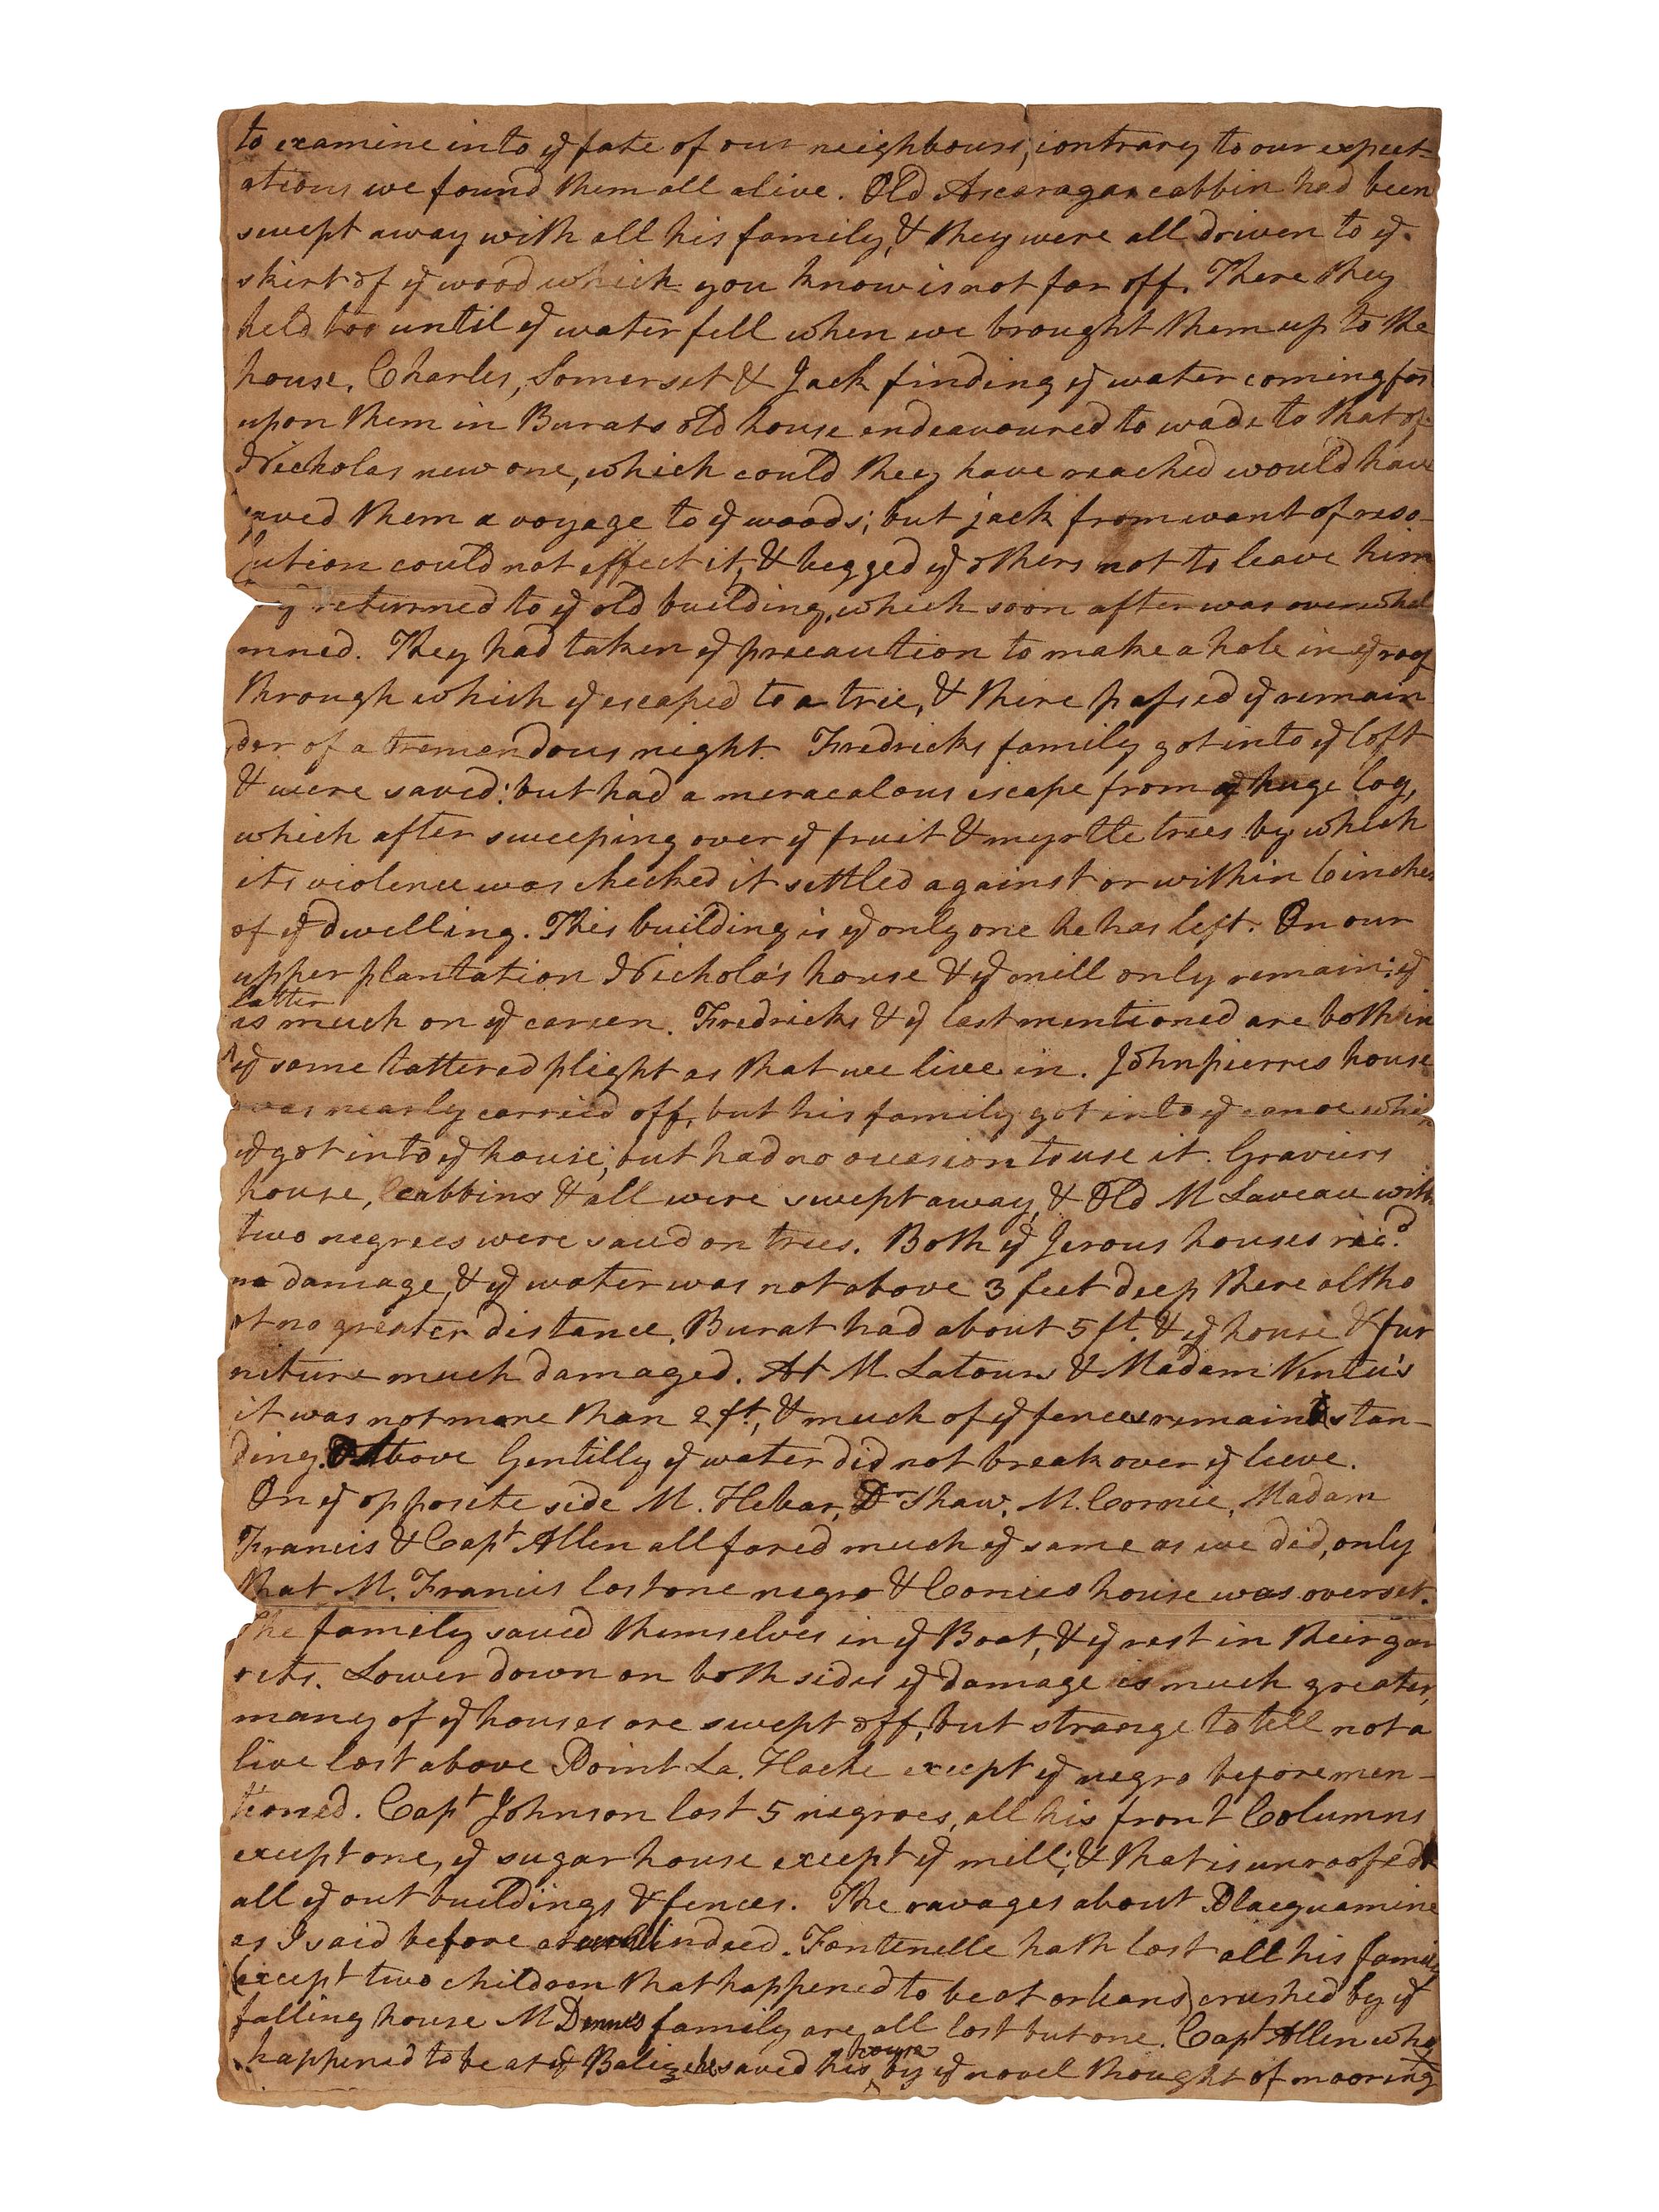 to examine into ye fate of our neighbours, contrary to our expect=
ations we found them all alive. Old Ascaragas cabbin had been
swept away with all his family, & they were all driven to ye
skirt of ye wood which you know is not far off. There they
held too until ye water fell when we brought them up to the
house. Charles, Somerset & Jack finding ye water coming fast
upon them in Burats old house endeavoured to wade to that of
Nicholas new one, which could they have reached would have
saved them a voyage to ye woods; but jack from want of reso-
lution could not effect it, & begged ye others not to leave him
ey returned to ye old building, which soon after was overwhel
mned. They had taken ye precaution to make a hole in ye roof
through which ye escaped to a tree, & there passed ye remain
der of a tremendous night. Fredricks family got into ye loft
& were saved: but had a meracalous escape from ye huge log,
which after sweeping over ye fruit & myrtle trees by which
its violence was checked it settled against or within 6 inches
of ye dwelling. This building is ye only one he has left. On our
upper plantation Nichola's house & ye mill only remain: ye
latter
is much on ye careen. Fredricks & ye last mentioned are both in
ye same tattered plight as that we live in. Johnpierres house
was nearly carried off, but his family got into ye canoe which
ye got into ye house, but had no occasion to use it. Graviers
house, cabbins & all were swept away, & Old M Laveau with
two negroes were saved on trees. Both ye Jerous houses recd.
no damage, & ye water was not above 3 feet deep there altho
at no greater distance. Burat had about 5 ft. & ye house & fur
niture much damaged. At M Latours & Madam Ventu's
it was not more than 2 ft, & much of ye fences remain stan-
ding. Above Gentilly ye water did not break over ye leeve.
On ye opposite side M. Hebar, Dr Shaw, M. Cornie, Madam
Francis & Capt Allen all fared much ye same as we did, only
that M. Francis lost one negro & Cornies house was overset.
The family saved themselves in ye Boat, & ye rest in their gar
rets. Lower down on both sides ye damage is much greater,
many of ye houses are swept off, but strange to tell not a
live lost above Point La. Hache except ye negro before men-
tioned. Capt Johnson lost 5 negroes, all his front Columns
except one, ye sugar house except ye mill; & that is unroofed
all ye out buildings & fences. The ravages about Placquamine
as I said before indeed. Fontenelle hath lost all his family
(except two children that happened to be at orleans) crushed by ye
falling house M Dennis family are all lost but one. Capt Allen who
happened to be at ye Balize saved his by ye novel thought of mooring